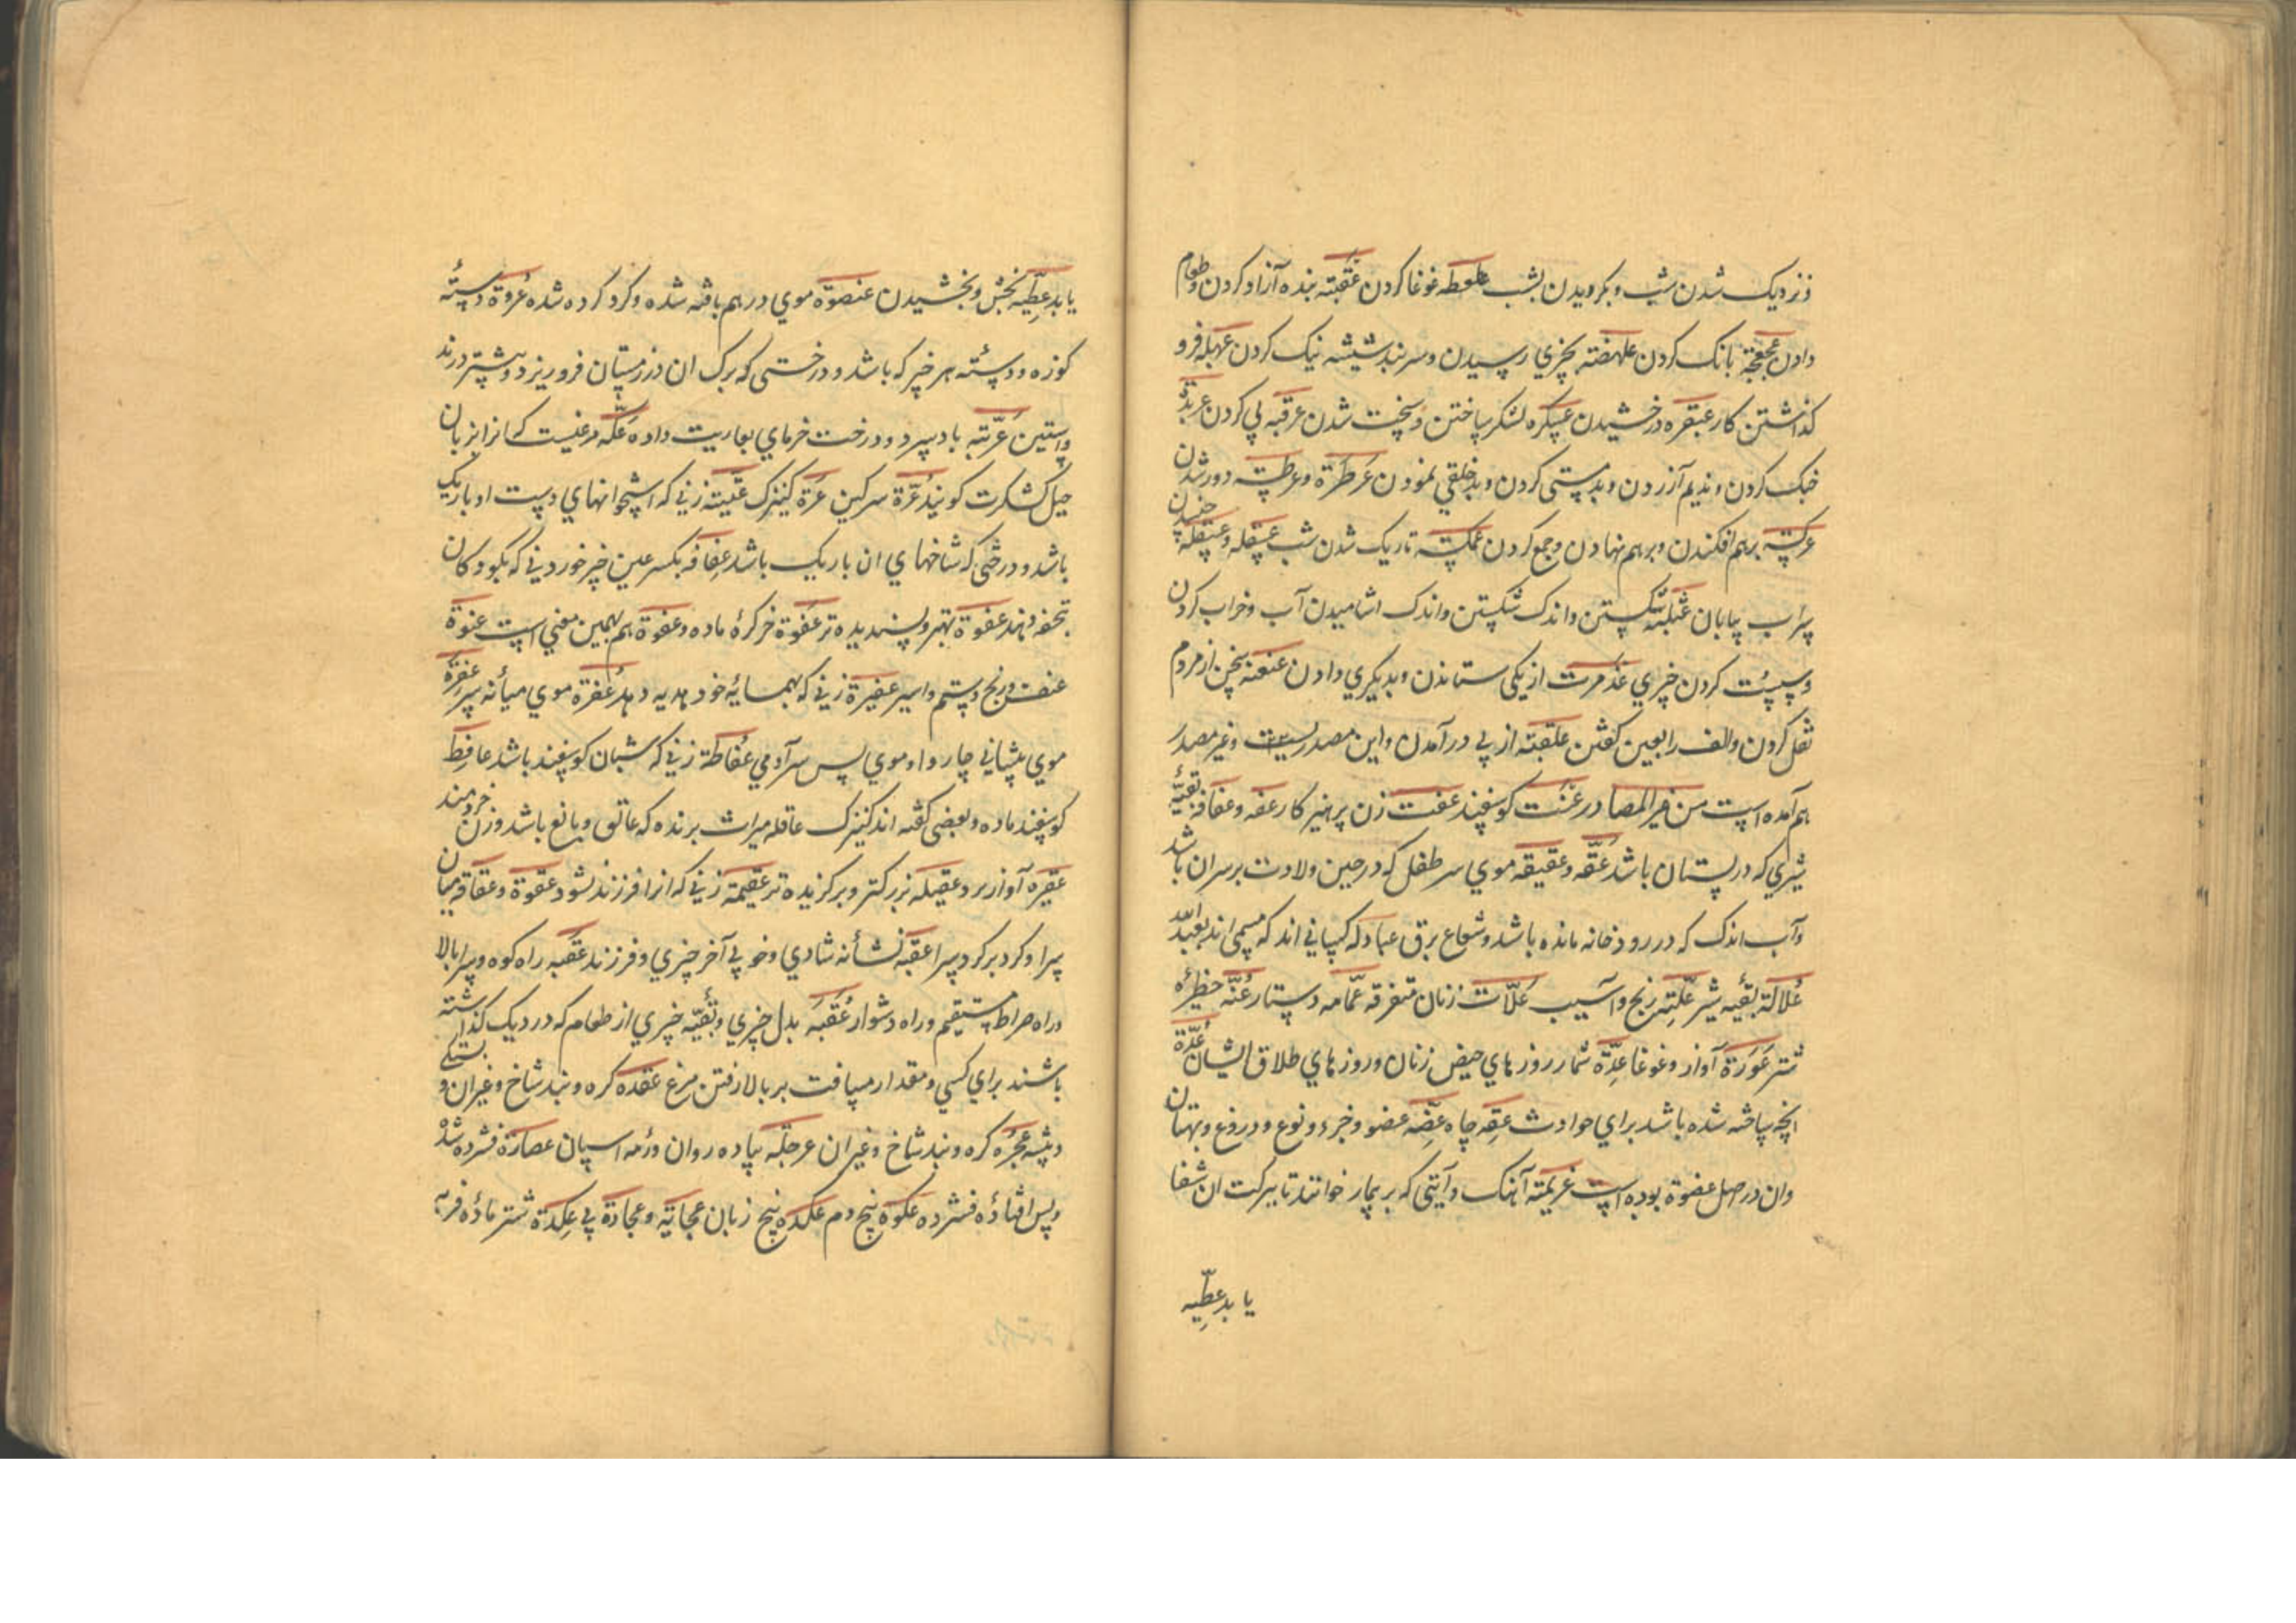 و نزدیک شدن شب و بگرویدن بشب علعطه غوغا کردن عقبته بنده آزاد کردن و طعام
دادن عجعجة بانک کردن علهضته بچیزي رسیدن و سر بند شیشه نیک کردن عبهله فرو
گذاشتن کار عبقره درخشیدن عسکره لشکر ساختن و سخت شدن عرقبه پی کردن عربدة
جنک کردن و ندیم آزردن و بدمستی کردن و بدخلقي نمودن عرطزة و عرطسته دور شدن
عرکسته برهم افکندن و برهم نهادن و جمع کردن عمکسته تاریک شدن شب عسقله و عسقلة جنبیدن
سراب بیابان عثلبته شکستن و اندک شکستن و اندک اشامیدن آب و خراب کردن
و سست کردن چیزي عذمرت از یکی ستاندن و بدیکري دادن عنعنه سخن از مردم
نقل کردن و الف را بعین کفتن علقبته از پي در آمدن و این مصدریست و غیر مصدر
هم آمده است من غیر المصادر عنت کوسفند عفت زن پرهیز کار عفه و عفافه بقیهٔ
شیري که در پستان باشد عقه و عقیقه موي سر طفل که در حین ولادت بر سر ان باشد
و آب اندک که در رودخانه مانده باشد و شعاع برق عبادله کسانی اند که مسمی اند بعبد الله
علالة بقیه شیر علته رنج و آسیب علات زنان متفرقه عمامه دستار عنه حظیرهٔ
شتر عورة آواز و غوغا عدة شمار روز هاي حیض زنان و روز هاي طلاق ایشان عدة
انچه ساخته شده باشد براي حوادث عقه چاه عضه عضو و جزء و نوع و دروغ و بهتان
و ان در اصل عضوة بوده است عزیمته آهنک و آیتی که بر بیمار خوانند تا ببرکت ان شفا
یابد عطیه
یابد عطیه بخش و بخشیدن عنصوة موي درهم بافته شده و کرد کرده شده عروة دستهٔ
کوزه و دستهٔ هر چیز که باشد و درختی که برک ان در زمستان فرو نریزد و بیشتر درند
و استین عریته باد سرد و درخت خرماي بعاریت داده عکه مرغیست که انرا بزبان
جیل کشکرت کویند عرة سرکین عزة کنیزک عشته زني که استخوانهاي دست او باریک
باشد و درختی که شاخهاي ان باریک باشد عفافه بکسر عین چیز خوردني که بکودکان
تحفه دهند عفوة بهتر و پسندیده تر عفوة خر کرهٔ ماده و عفوة هم بهمین معني است عنوة
عنف و رنج و ستم و اسیر عفیرة زني که بهمسایهٔ خود هدیه دهد عفرة موي میانه سر عفرة
موي پیشاني چاروا و موي پس سر آدمي عفاطة زني که شبان کوسفند باشد عافطه
کوسفند ماده و بعضی کفته اند کنیزک عاقله میراث برنده که عاتق و بالغ باشد و زن خردمند
عقیره آواز بر و عقیله بزرکتر و برکزیده تر عقیمة زني که انرا فرزند نشود عقوة و عقاقه میان
سرا و کرد بر کرد سرا عقبه نشانه شادي و خوبي آخر چیزي و فرزند عقبه راه کوه و سرا بالا
و راه صراط مستقیم و راه دشوار عقبه بدل چیزي و بقیه چیزي از طعام که در دیک کذاشته
باشند براي کسي و مقدار مسافت بر بالا رفتن مرغ عقده کره و بند شاخ و غیر ان و بستکي
و بیشه عجره کره و بند شاخ و غیر ان عرجلة پیاده روان و رمه اسپان عصارة فشرده شده
و پس افتادهٔ فشرده عکوة بیخ دم عکده بیخ زبان عجایة و عجادة پي عکدة شتر مادهٔ فربه